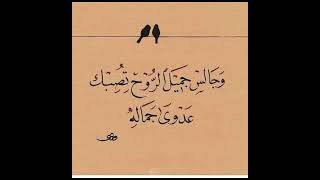 وَجَالِسْ جَمِيَلَ الرُّوْحِ تُصِبْك
عَدْوَىٰ جَمَالِهِ